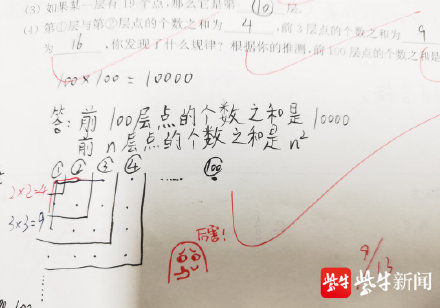 (3) 如果某一层有 19 个点,那么它是第 ⑩ 层.
(4) 第①层与第②层点的个数之和为 4 ,前 3 层点的个数之和为 9
为 16 ,你发现了什么规律?根据你的推测,前 100 层点的个数之和是
100×100=10000
答:前100层点的个数之和是10000
前n层点的个数之和是n²
① ② ③ ④ …… ⑩⓪
2×2=4
3×3=9
厉害!
9/13
紫牛新闻